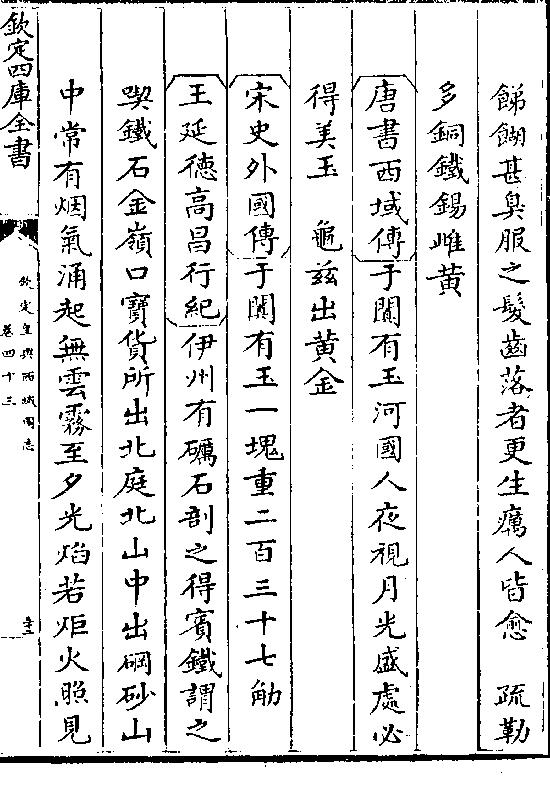 餳餬甚臭服之髮齒落者更生癘人皆愈　疏勒
多銅鐵錫雌黄
唐書西域傳于闐有玉河國人夜視月光盛處必
得美玉　龜兹出黄金
宋史外國傳于闐有玉一塊重二百三十七觔
王延德高昌行紀伊州有礪石剖之得賓鐵謂之
喫鐵石金嶺口寳貨所出北庭北山中出硇砂山
中常有烟氣涌起無雲霧至夕光焰若炬火照見
欽定四庫全書
欽定皇輿西域圖志
卷四十三